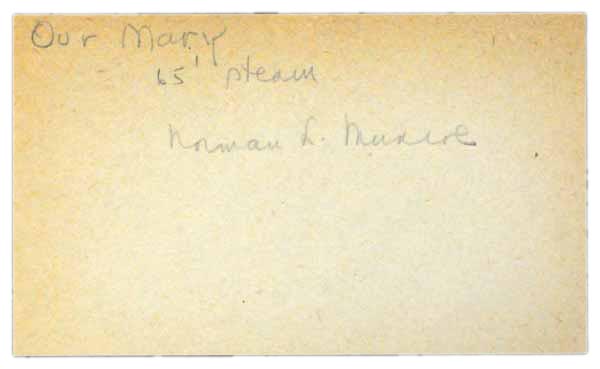 Our Mary
65' steam
Norman L. Munroe